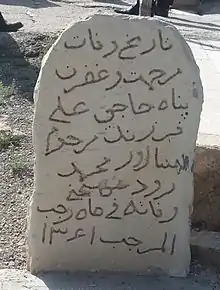 تاریخ وفات
مرحمت و غفران
پناه حاجی علی
فرزند مرحوم
محمد
رود
فی ماه رجب
المرجب ۱۳۶۱